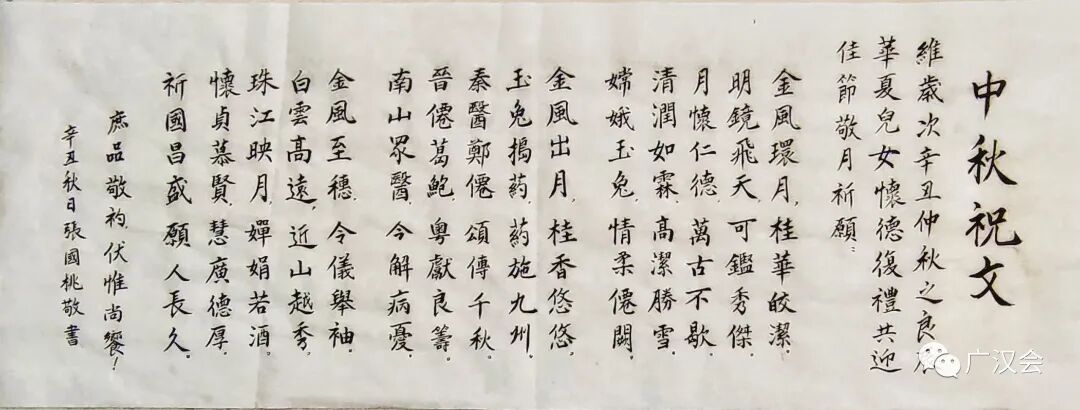 中秋祝文
維歲次辛丑仲秋之良
華夏兒女懷德復禮共迎
佳節敬月祈願：
金風環月，桂華皎潔。
明鏡飛天，可鑑秀傑。
月懷仁德，萬古不歇。
清潤如霖，高潔勝雪。
嫦娥玉兔，情柔僊闕。
金風出月，桂香悠悠。
玉兔搗药，药施九州。
秦醫鄭僊，頌傳千秋。
晉僊葛鮑，粵獻良籌。
南山眾醫，今解病憂。
金風至穗，令儀舉袖。
白雲高遠，近山越秀。
珠江映月，嬋娟若酒。
懷貞慕賢，慧廣德厚。
祈國昌盛，願人長久。
庶品敬礿，伏惟尚饗！
辛丑秋日張國桃敬書
广汉会